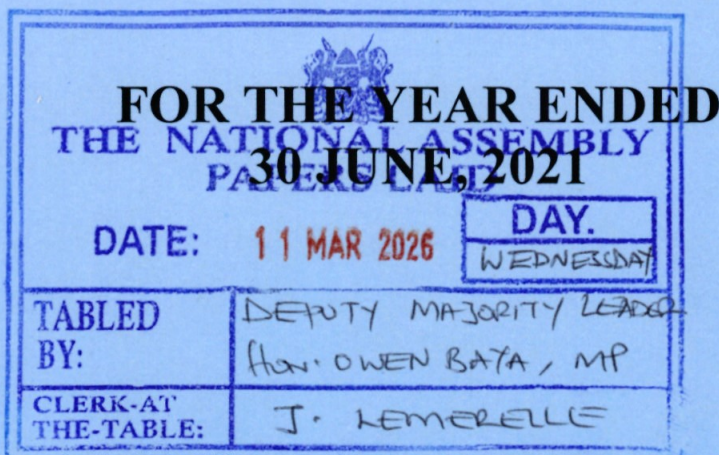 FOR THE YEAR ENDED
THE NATIONAL ASSEMBLY
30 JUNE, 2021
PAPERS LAID
DATE: 11 MAR 2026
DAY.
WEDNESDAY
TABLED BY:
DEPUTY MAJORITY LEADER
Hon. OWEN BAYA, MP
CLERK-AT THE-TABLE:
J. LEMERELLE